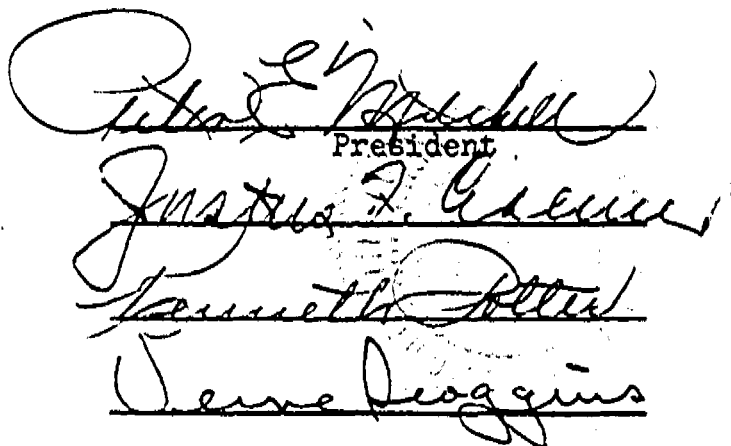 Peter E. Mitchell
President
Justus F.
Kenneth Potter
Verne Scoggins